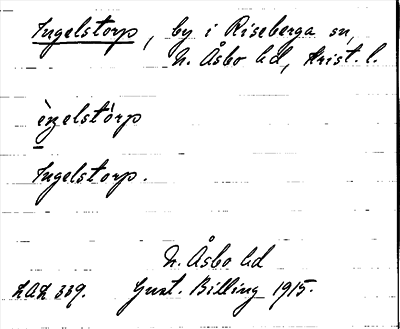 Ingelstorp, by i Riseberga sn,
N. Åsbo hd, Krist. l.
èŋelstòrp
Ingelstorp.
N. Åsbo hd
LAL 339. Gust. Billing 1915.